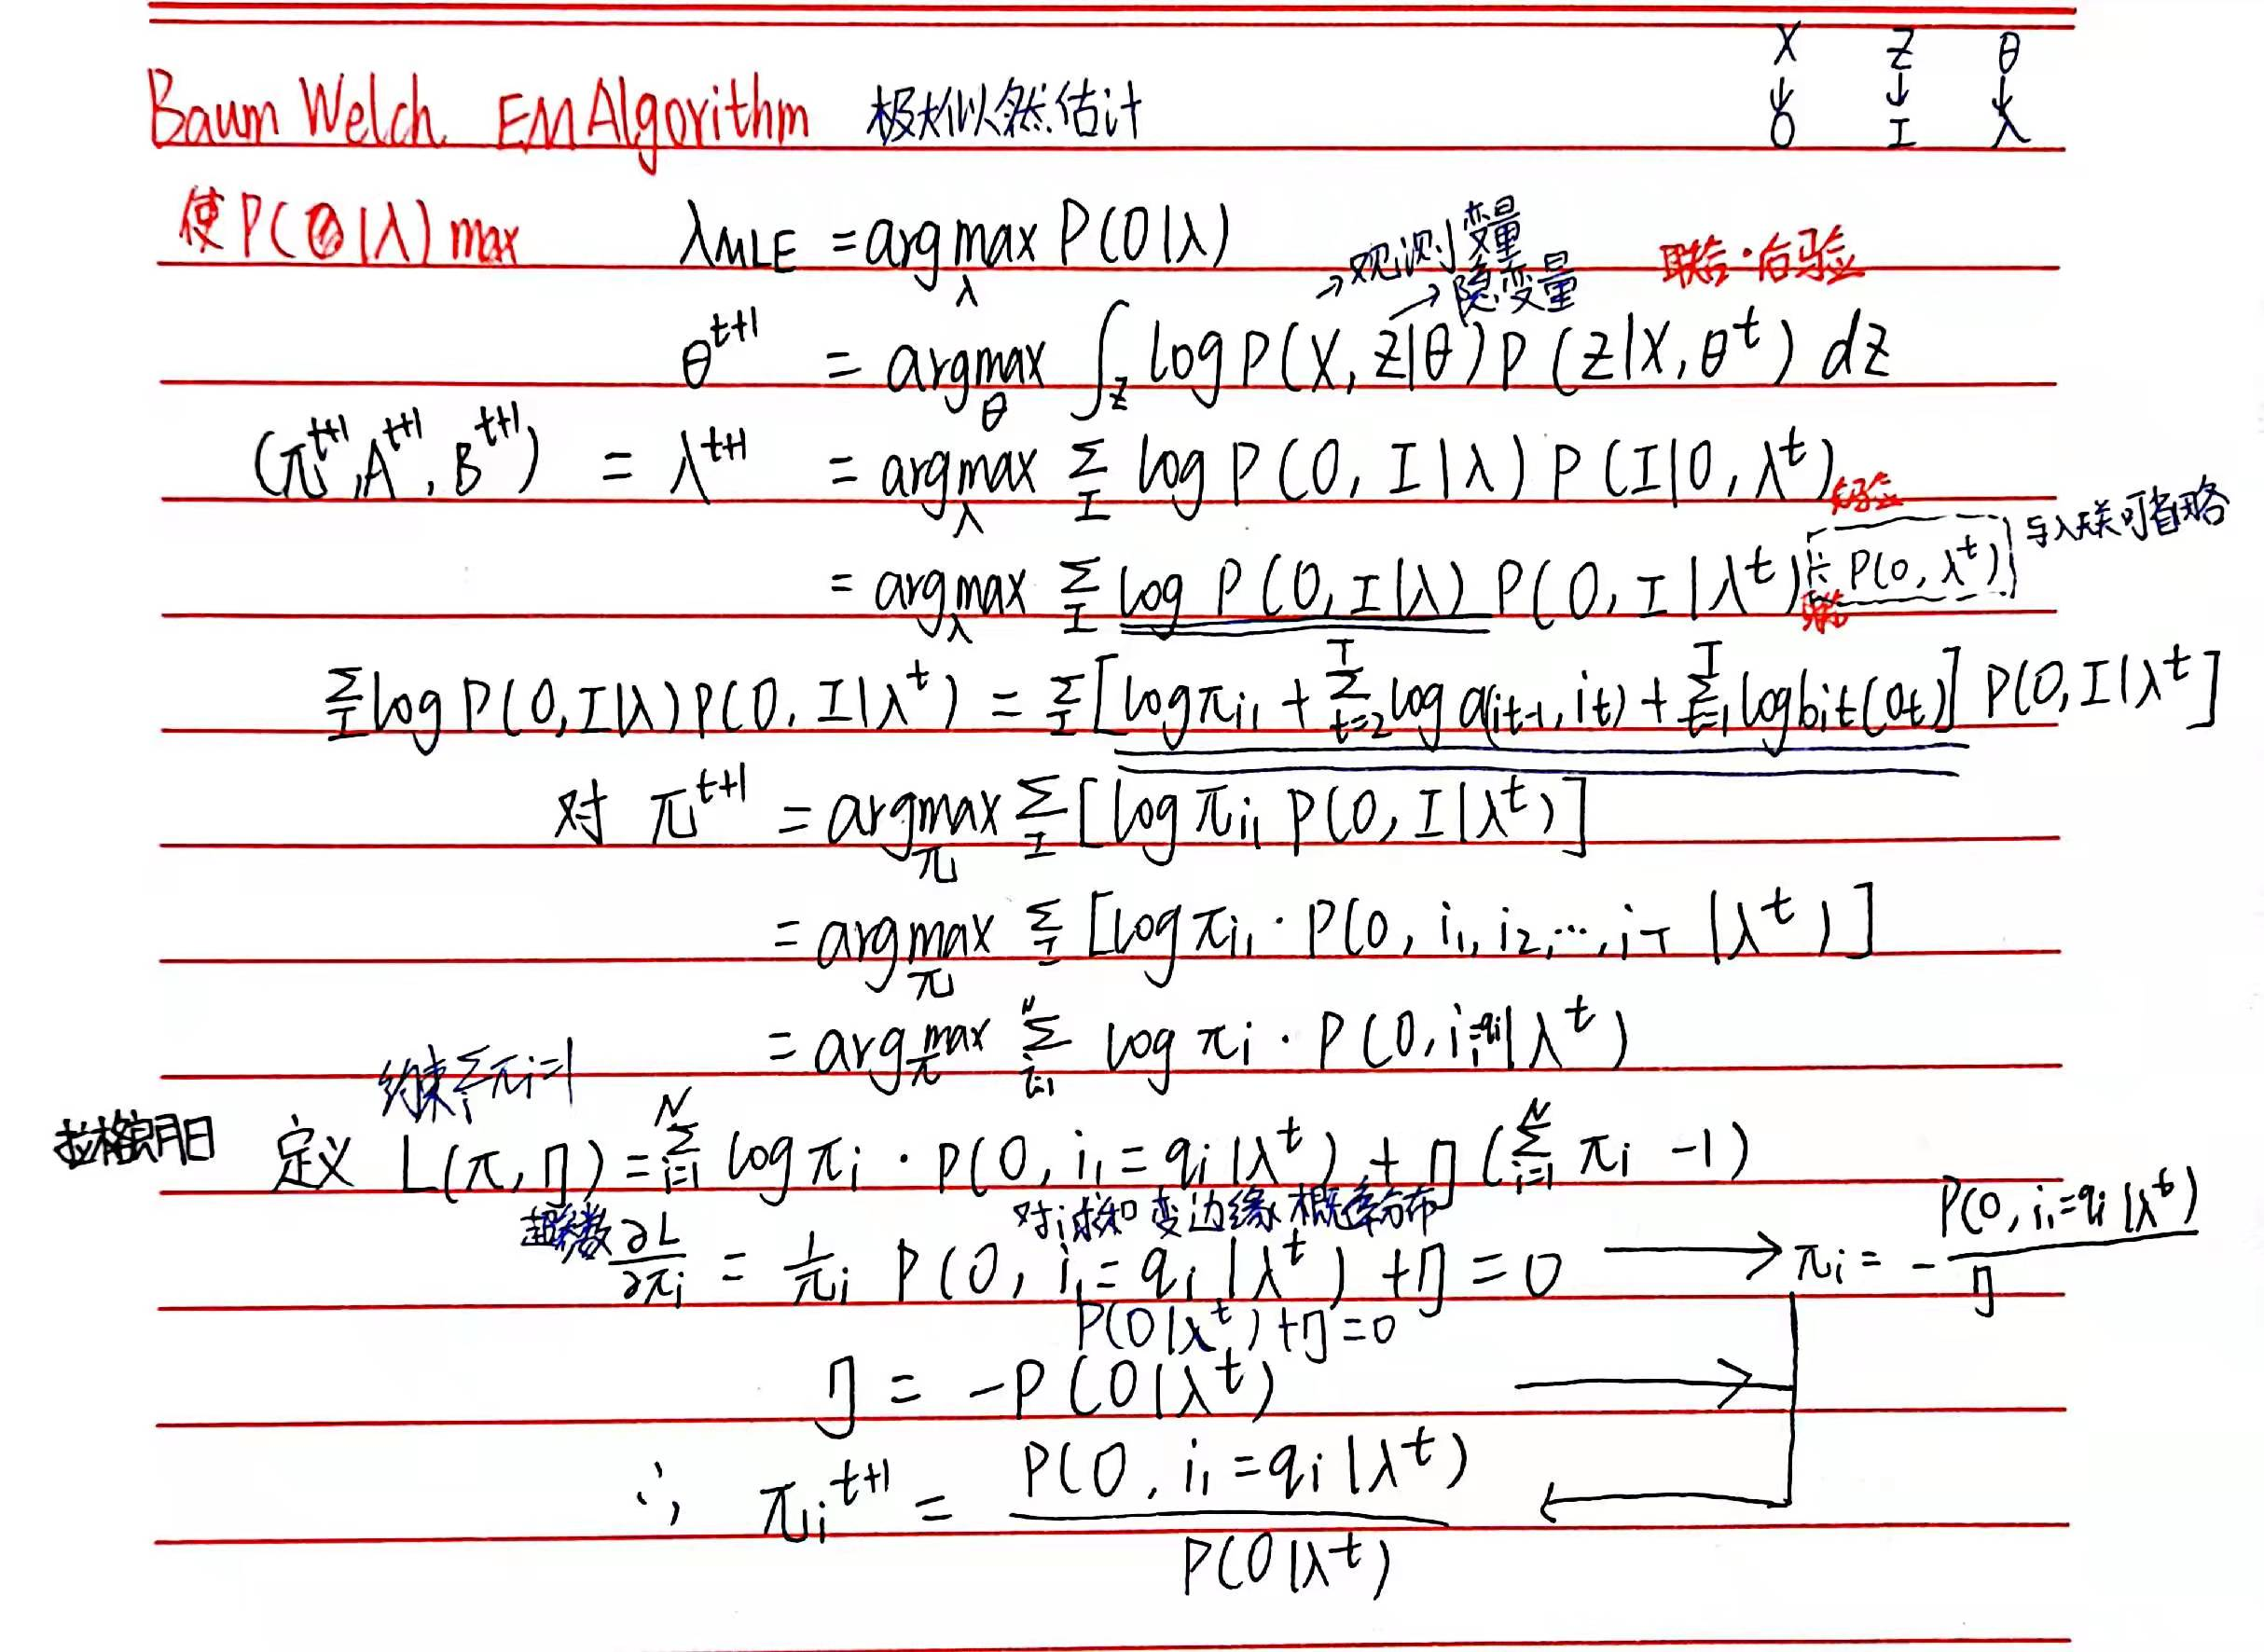 X Z θ
↓ ↓ ↓
O I λ
Baum Welch. EM Algorithm 极大似然估计
使P(O|λ)max λMLE = argmax_λ P(O|λ)
→观测变量
→隐变量
联合·后验
θ^{t+1} = argmax_θ ∫_z log P(X, Z|θ) P(Z|X, θ^t) dz
(π^{t+1}, A^{t+1}, B^{t+1}) = λ^{t+1} = argmax_λ Σ_I log P(O, I|λ) P(I|O, λ^t) 后验
= argmax_λ Σ_I log P(O, I|λ) P(O, I|λ^t) ÷ P(O, λ^t) 与λ无关可省略
联合
Σ_I log P(O, I|λ) P(O, I|λ^t) = Σ_I [log π_{i_1} + Σ_{t=2}^T log a(i_{t-1}, i_t) + Σ_{t=1}^T log b_{i_t}(O_t)] P(O, I|λ^t]
对 π^{t+1} = argmax_π Σ_I [log π_{i_1} P(O, I|λ^t)]
= argmax_π Σ_I [log π_{i_1} · P(O, i_1, i_2, ..., i_T |λ^t)]
= argmax_π Σ_{i=1}^N log π_i · P(O, i_1=q_i|λ^t)
约束Σ_i π_i=1
拉格朗日 定义 L(π, η) = Σ_{i=1}^N log π_i · P(O, i_1 = q_i |λ^t) + η (Σ_{i=1}^N π_i -1)
超参数 对i求和 变边缘概率分布
∂L/∂π_i = 1/π_i P(O, i_1 = q_i |λ^t) + η = 0 ⟶ π_i = - P(O, i_1=q_i |λ^t)/η
P(O|λ^t) + η = 0
η = -P(O|λ^t) ⟶
∴ π_i^{t+1} = P(O, i_1 = q_i |λ^t) / P(O|λ^t) ←